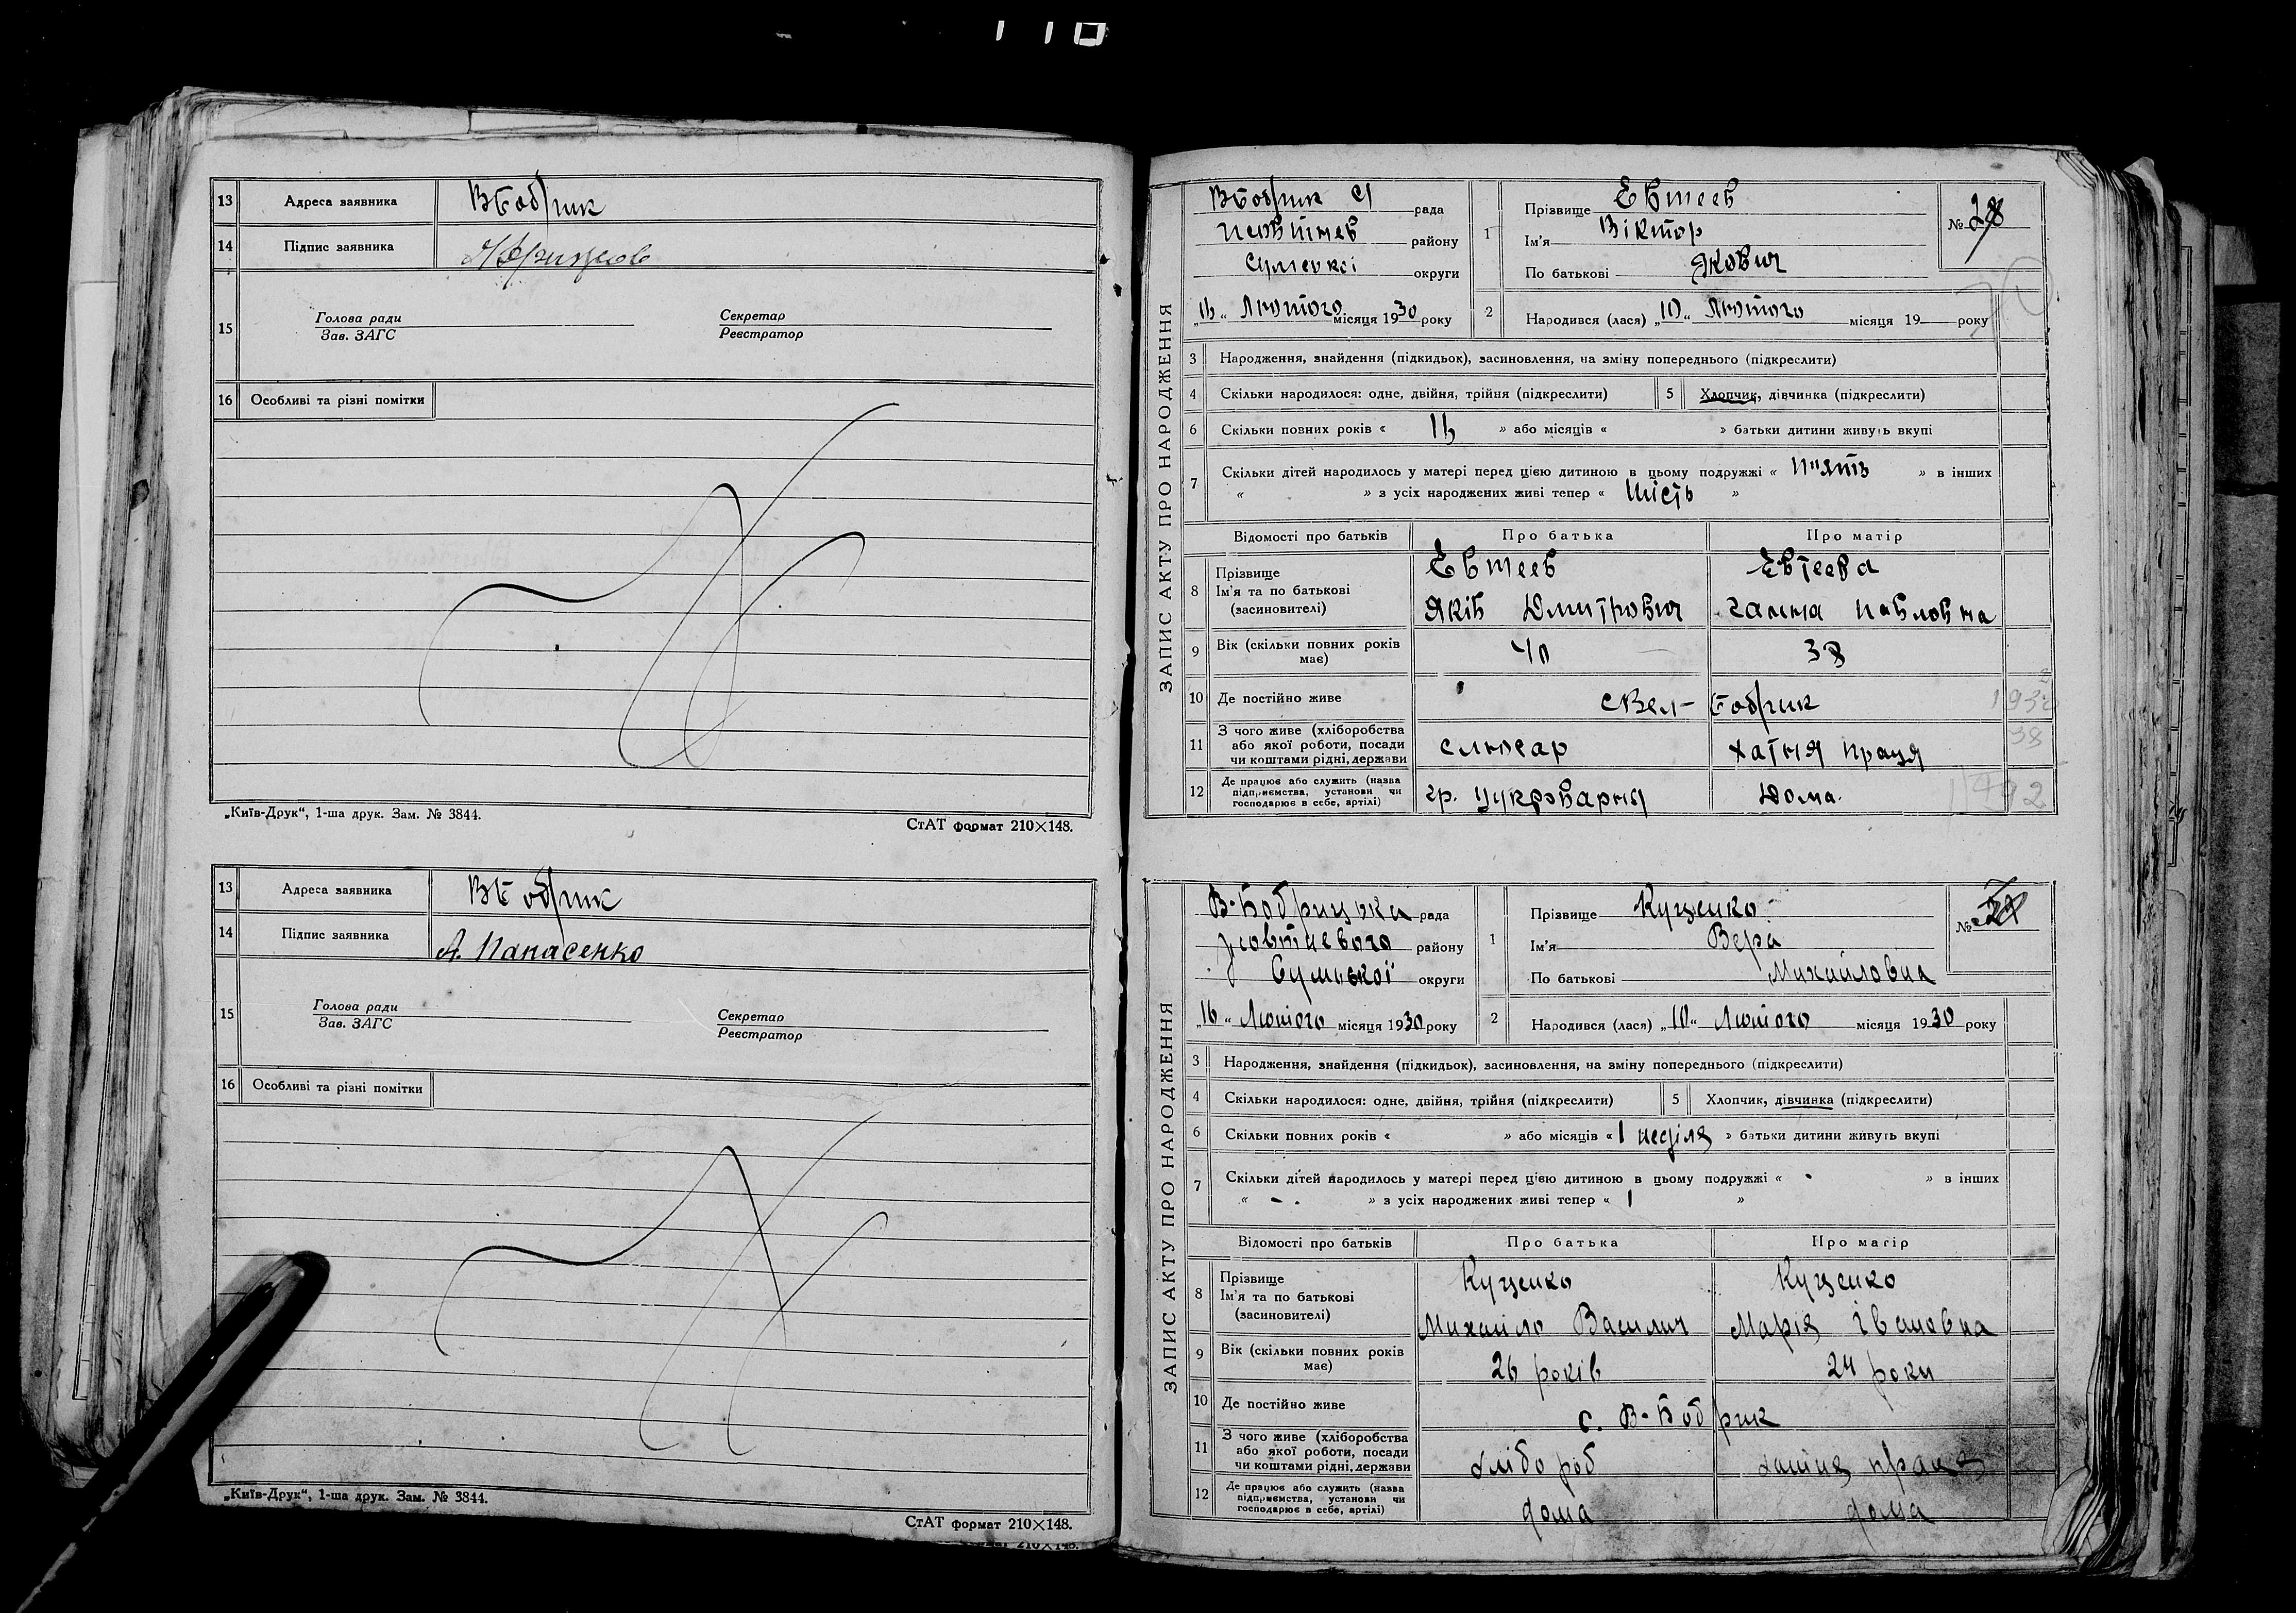 13 Адреса заявника ВБобрик
14 Підпис заявника
15 Голова ради Секретар
Зав. ЗАГС Реєстратор
16 Особливі та різні помітки
„Київ-Друк“, 1-ша друк. Зам. № 3844.
СтАТ формат 210×148.
13 Адреса заявника ВБобрик
14 Підпис заявника А. Панасенко
15 Голова ради Секретар
Зав. ЗАГС Реєстратор
16 Особливі та різні помітки
„Київ-Друк“, 1-ша друк. Зам. № 3844.
СтАТ формат 210×148.
ЗАПИС АКТУ ПРО НАРОДЖЕННЯ
ВБобрик С рада
району
Сумської округи
„16“ Лютого місяця 1930 року
1 Прізвище Евтеев
Ім'я Віктор
По батькові Якович
№ 28
2 Народився (лася) „10“ Лютого місяця 19 року
3 Народження, знайдення (підкидьок), засиновлення, на зміну попереднього (підкреслити)
4 Скільки народилося: одне, двійня, трійня (підкреслити) 5 Хлопчик, дівчинка (підкреслити)
6 Скільки повних років « 16 » або місяців « » батьки дитини живуть вкупі
7 Скільки дітей народилось у матері перед цією дитиною в цьому подружжі « п'ять » в інших
« » з усіх народжених живі тепер « шість »
Відомості про батьків Про батька Про матір
8 Прізвище Евтеев Евтеева
Ім'я та по батькові
(засиновителі) Яків Дмитрович ганна Павловна
9 Вік (скільки повних років має) 40 38
10 Де постійно живе с Вел-Бобрик
11 З чого живе (хліборобства або якої роботи, посади чи коштами рідні, держави слюсар хатня праця
12 Де працює або служить (назва підприємства, установи чи господарює в себе, артілі) гр. цукроварня Дома.
ЗАПИС АКТУ ПРО НАРОДЖЕННЯ
В-Бобрицька рада
Жовтневого району
Сумської округи
„16“ Лютого місяця 1930 року
1 Прізвище Куценко
Ім'я Вера
По батькові Михайловна
№
2 Народився (лася) „10“ Лютого місяця 1930 року
3 Народження, знайдення (підкидьок), засиновлення, на зміну попереднього (підкреслити)
4 Скільки народилося: одне, двійня, трійня (підкреслити) 5 Хлопчик, дівчинка (підкреслити)
6 Скільки повних років « » або місяців « 1 неділя » батьки дитини живуть вкупі
7 Скільки дітей народилось у матері перед цією дитиною в цьому подружжі « - » в інших
« - » з усіх народжених живі тепер « 1 »
Відомості про батьків Про батька Про матір
8 Прізвище Куценко Куценко
Ім'я та по батькові
(засиновителі) Михайло Василич Марія Івановна
9 Вік (скільки повних років має) 26 років 24 роки
10 Де постійно живе с. В-Бобрик
11 З чого живе (хліборобства або якої роботи, посади чи коштами рідні, держави хлібороб хатня праця
12 Де працює або служить (назва підприємства, установи чи господарює в себе, артілі) дома дома